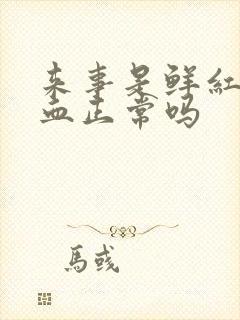 来事是鲜红
血正常吗
馬彧